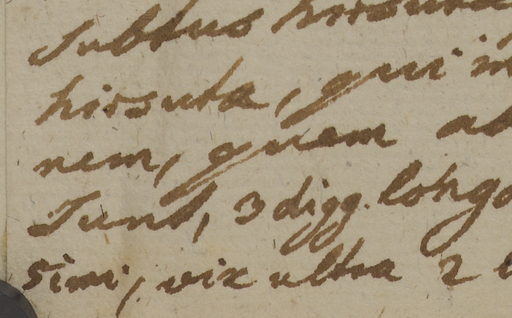 subtus hirsuta
hirsutæ, qui in
nem, quam ab
sunt, 3 digg. longo
simi, vix ultra 2